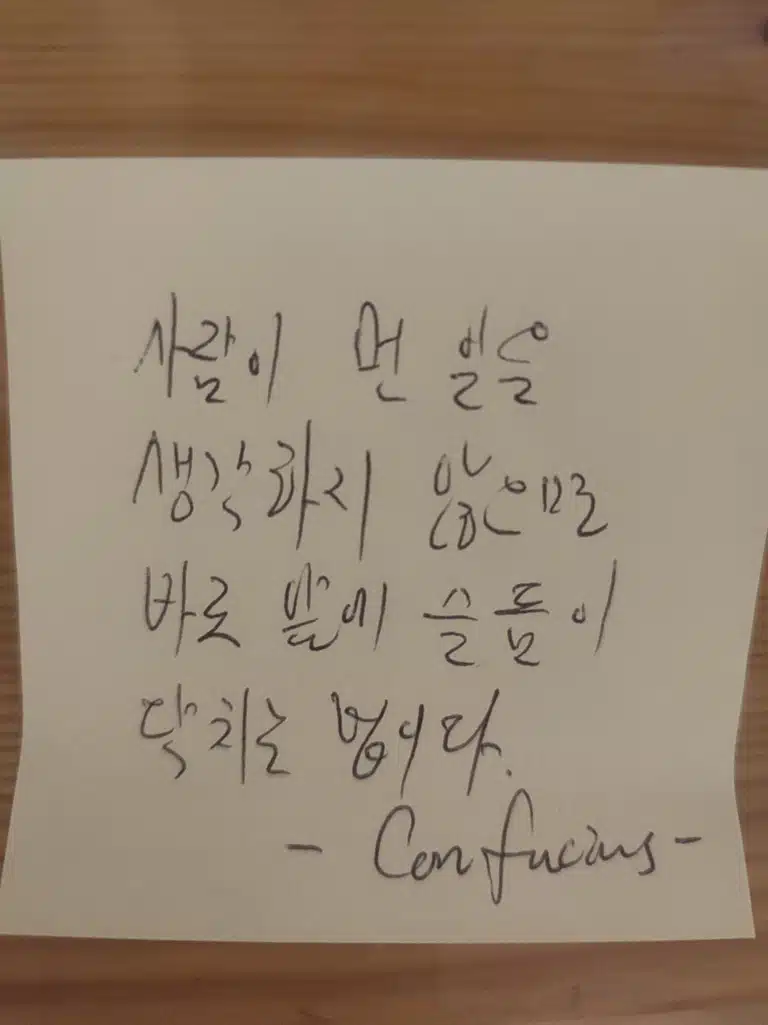 사람이 먼 일을
생각하지 않으면
바로 앞에 슬픔이
닥치는 법이다.
- Confucius -